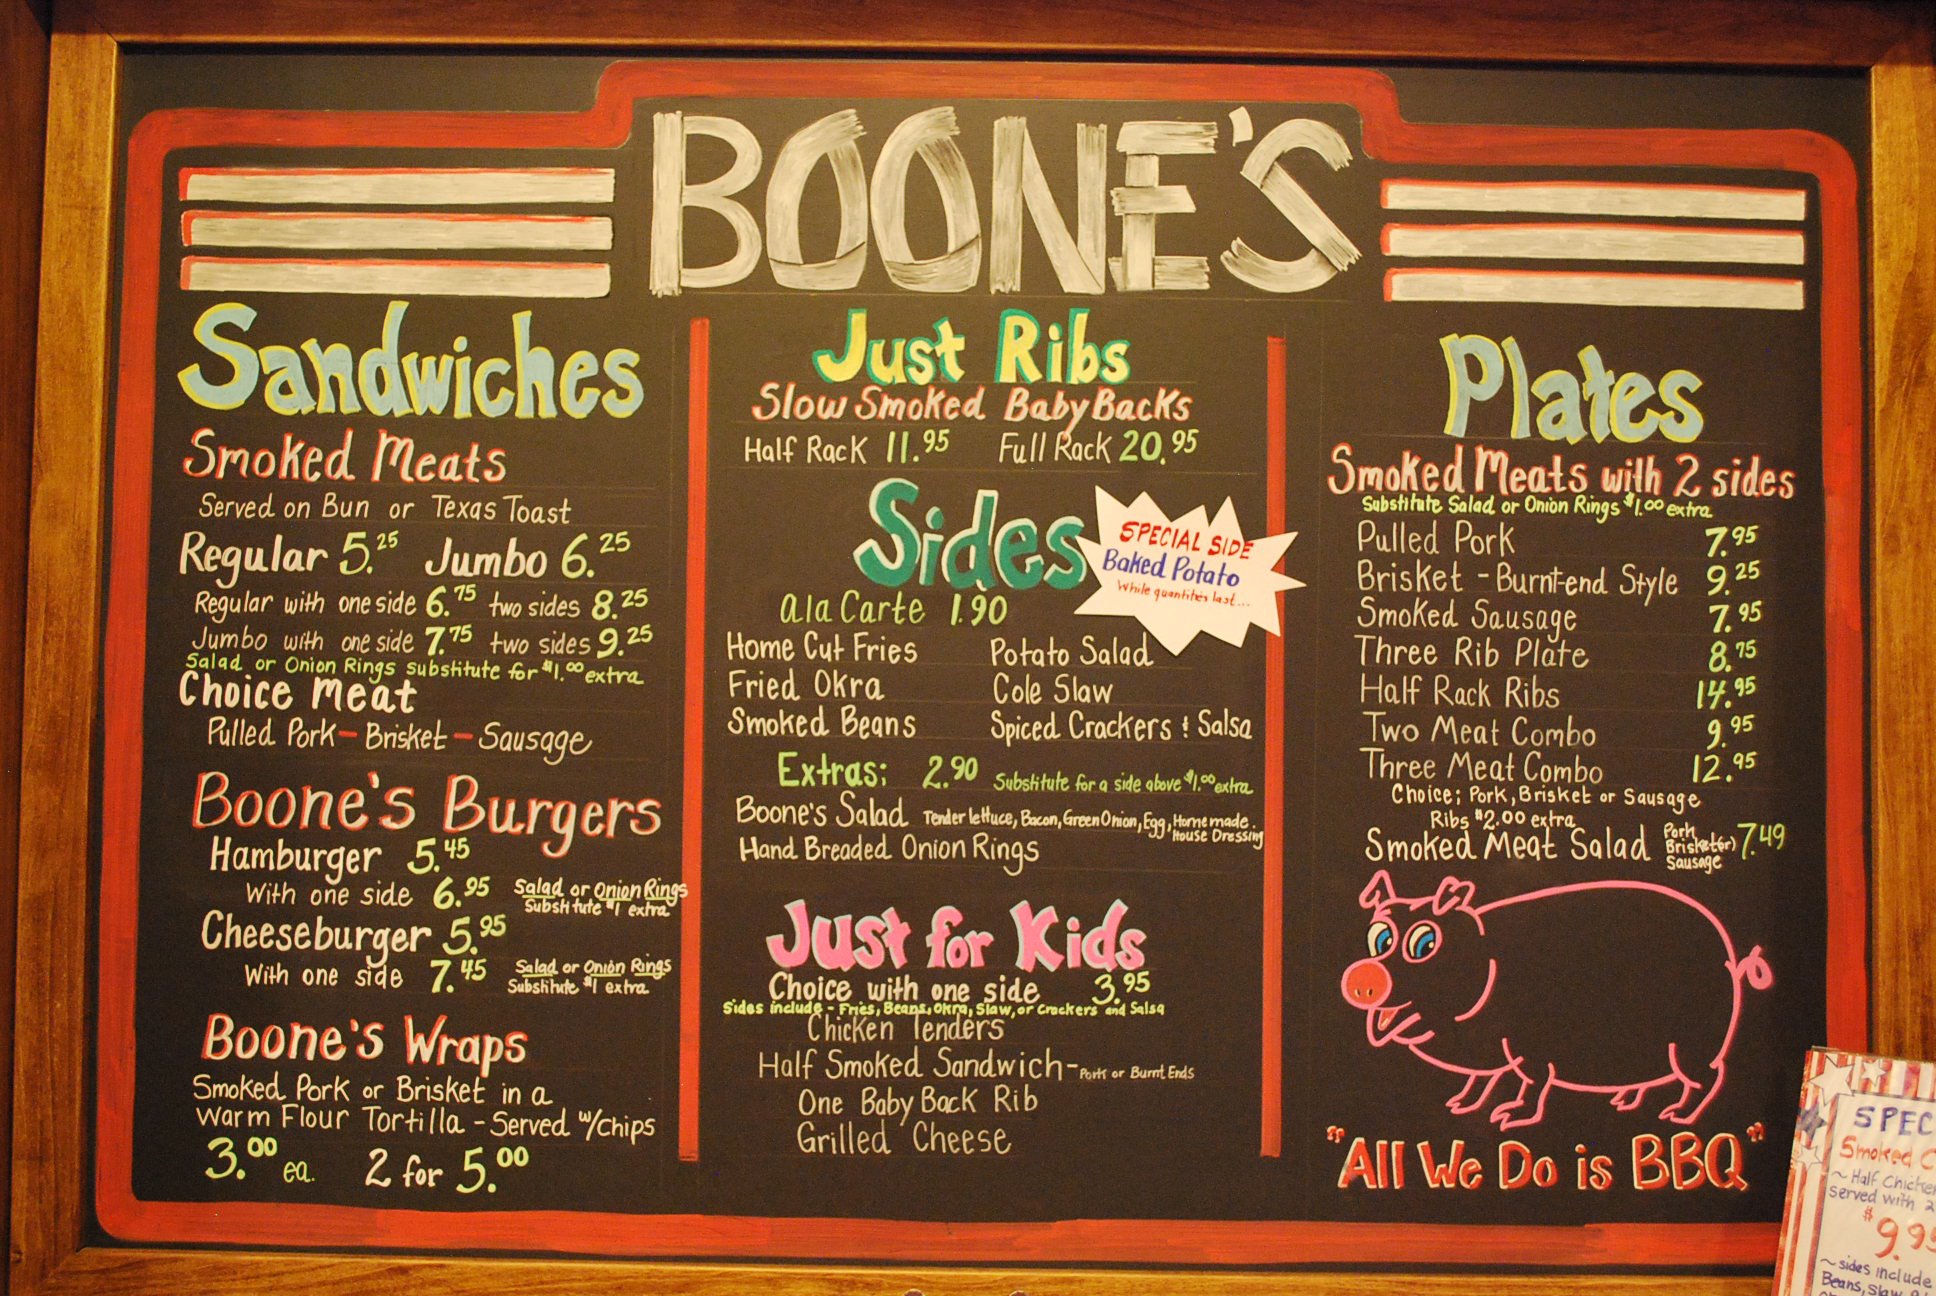 BOONE'S
Sandwiches
Smoked Meats
Served on Bun or Texas Toast
Regular 5.25 Jumbo 6.25
Regular with one side 6.75 two sides 8.25
Jumbo with one side 7.75 two sides 9.25
Salad or Onion Rings substitute for $1.00 extra
Choice Meat
Pulled Pork - Brisket - Sausage
Boone's Burgers
Hamburger 5.45
With one side 6.95 Salad or Onion Rings
Substitute $1 extra
Cheeseburger 5.95
With one side 7.45 Salad or Onion Rings
Substitute $1 extra
Boone's Wraps
Smoked Pork or Brisket in a
Warm Flour Tortilla - Served w/chips
3.00 ea. 2 for 5.00
Just Ribs
Slow Smoked Baby Backs
Half Rack 11.95 Full Rack 20.95
Sides
SPECIAL SIDE
Baked Potato
While quantities last...
ala Carte 1.90
Home Cut Fries Potato Salad
Fried Okra Cole Slaw
Smoked Beans Spiced Crackers & Salsa
Extras: 2.90 Substitute for a side above $1.00 extra
Boone's Salad Tender lettuce, Bacon, Green Onion, Egg, Homemade
House Dressing
Hand Breaded Onion Rings
Just for Kids
Choice with one side 3.95
Sides include - Fries, Beans, Okra, Slaw, or Crackers and Salsa
Chicken Tenders
Half Smoked Sandwich - Pork or Burnt Ends
One Baby Back Rib
Grilled Cheese
Plates
Smoked Meats with 2 sides
Substitute Salad or Onion Rings $1.00 extra
Pulled Pork 7.95
Brisket - Burnt-end Style 9.25
Smoked Sausage 7.95
Three Rib Plate 8.75
Half Rack Ribs 14.95
Two Meat Combo 9.95
Three Meat Combo 12.95
Choice; Pork, Brisket or Sausage
Ribs $2.00 extra
Smoked Meat Salad Pork Brisket (or) Sausage 7.49
"All We Do is BBQ"
SPEC
Smoked C
~ Half Chicke
served with 2
$9.95
~ sides include
Beans, Slaw,